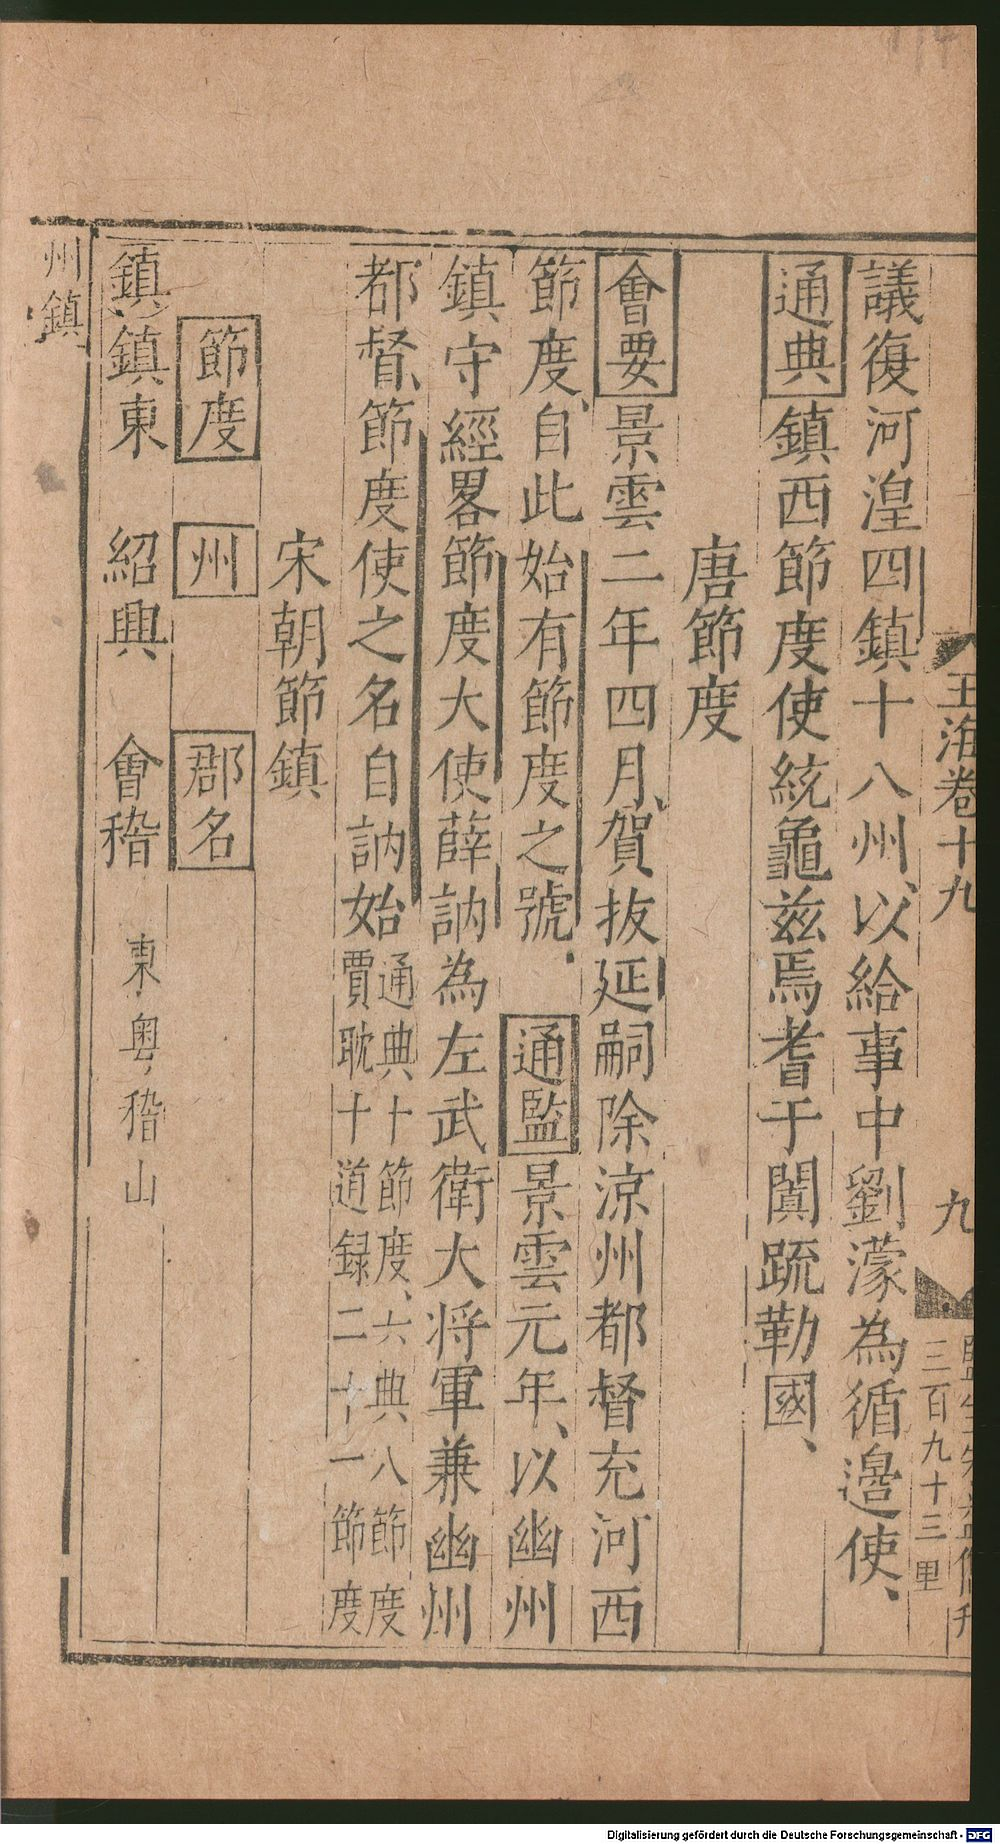 玉海卷十九
九
三百九十三里
議復河湟四鎮十八州、以給事中劉濛為循邊使、
通典鎮西節度使統龜兹焉耆于闐疏勒國、
唐節度
會要景雲二年四月、賀拔延嗣除涼州都督充河西
節度、自此始有節度之號. 通監景雲元年、以幽州
鎮守經畧節度大使薛訥為左武衛大將軍兼幽州
都督、節度使之名自訥始 通典十節度、六典八節度
賈耽十道録二十一節度
宋朝節鎮
節度 州 郡名
鎮、鎮東 紹興 會稽 東粤稽山
州鎮
Digitalisierung gefördert durch die Deutsche Forschungsgemeinschaft - DFG